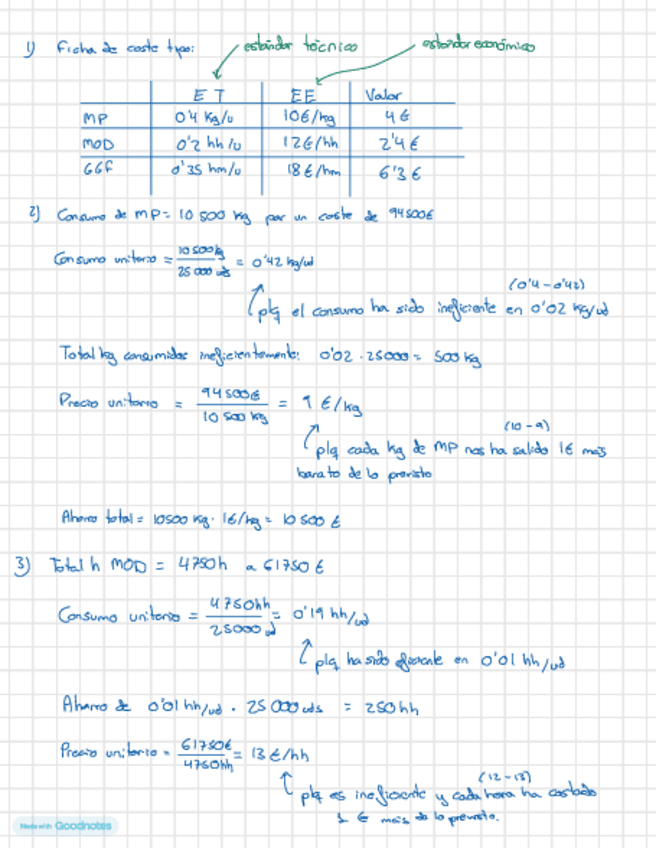 1) Ficha de coste tipo: estándar técnico estándar económico
ET EE Valor
MP 0'4 Kg/u 10€/kg 4€
MOD 0'2 hh/u 12€/hh 2'4 €
GGF 0'35 hm/u 18€/hm 6'3 €
2) Consumo de MP = 10 500 kg por un coste de 94500€
Consumo unitario = 10 500 kg / 25 000 uds = 0'42 kg/ud
(0'4 - 0'42)
plq el consumo ha sido ineficiente en 0'02 kg/ud
Total kg consumidos ineficientemente: 0'02 · 25000 = 500 kg
Precio unitario = 94 500€ / 10 500 kg = 9 €/kg
(10 - 9)
plq cada kg de MP nos ha salido 1€ más
barato de lo previsto
Ahorro total = 10500 kg · 1€/kg = 10 500 €
3) Total h MOD = 4750h a 61750 €
Consumo unitario = 4750hh / 25000 ud = 0'19 hh/ud
plq ha sido eficiente en 0'01 hh/ud
Ahorro de 0'01 hh/ud · 25 000 uds = 250 hh
Precio unitario = 61750€ / 4750hh = 13 €/hh
(12 - 13)
plq es ineficiente y cada hora ha costado
1 € más de lo previsto.
Made with Goodnotes